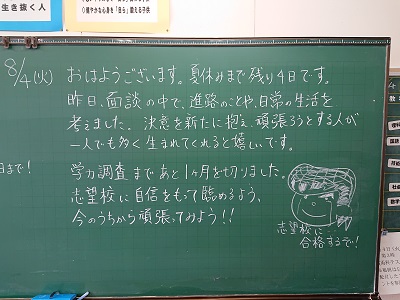 生き抜く人
◎健やかな心身を「自ら」鍛える子供
8/4(火)
おはようございます。夏休みまで残り4日です。
昨日、面談の中で、進路のことや、日常の生活を
考えました。決意を新たに抱え、頑張ろうとする人が
一人でも多く生まれてくれると嬉しいです。
学力調査まであと1ヶ月を切りました。
志望校に自信をもって臨めるよう、
今のうちから頑張ってみよう!!
日まで!
志望校に
合格するで!